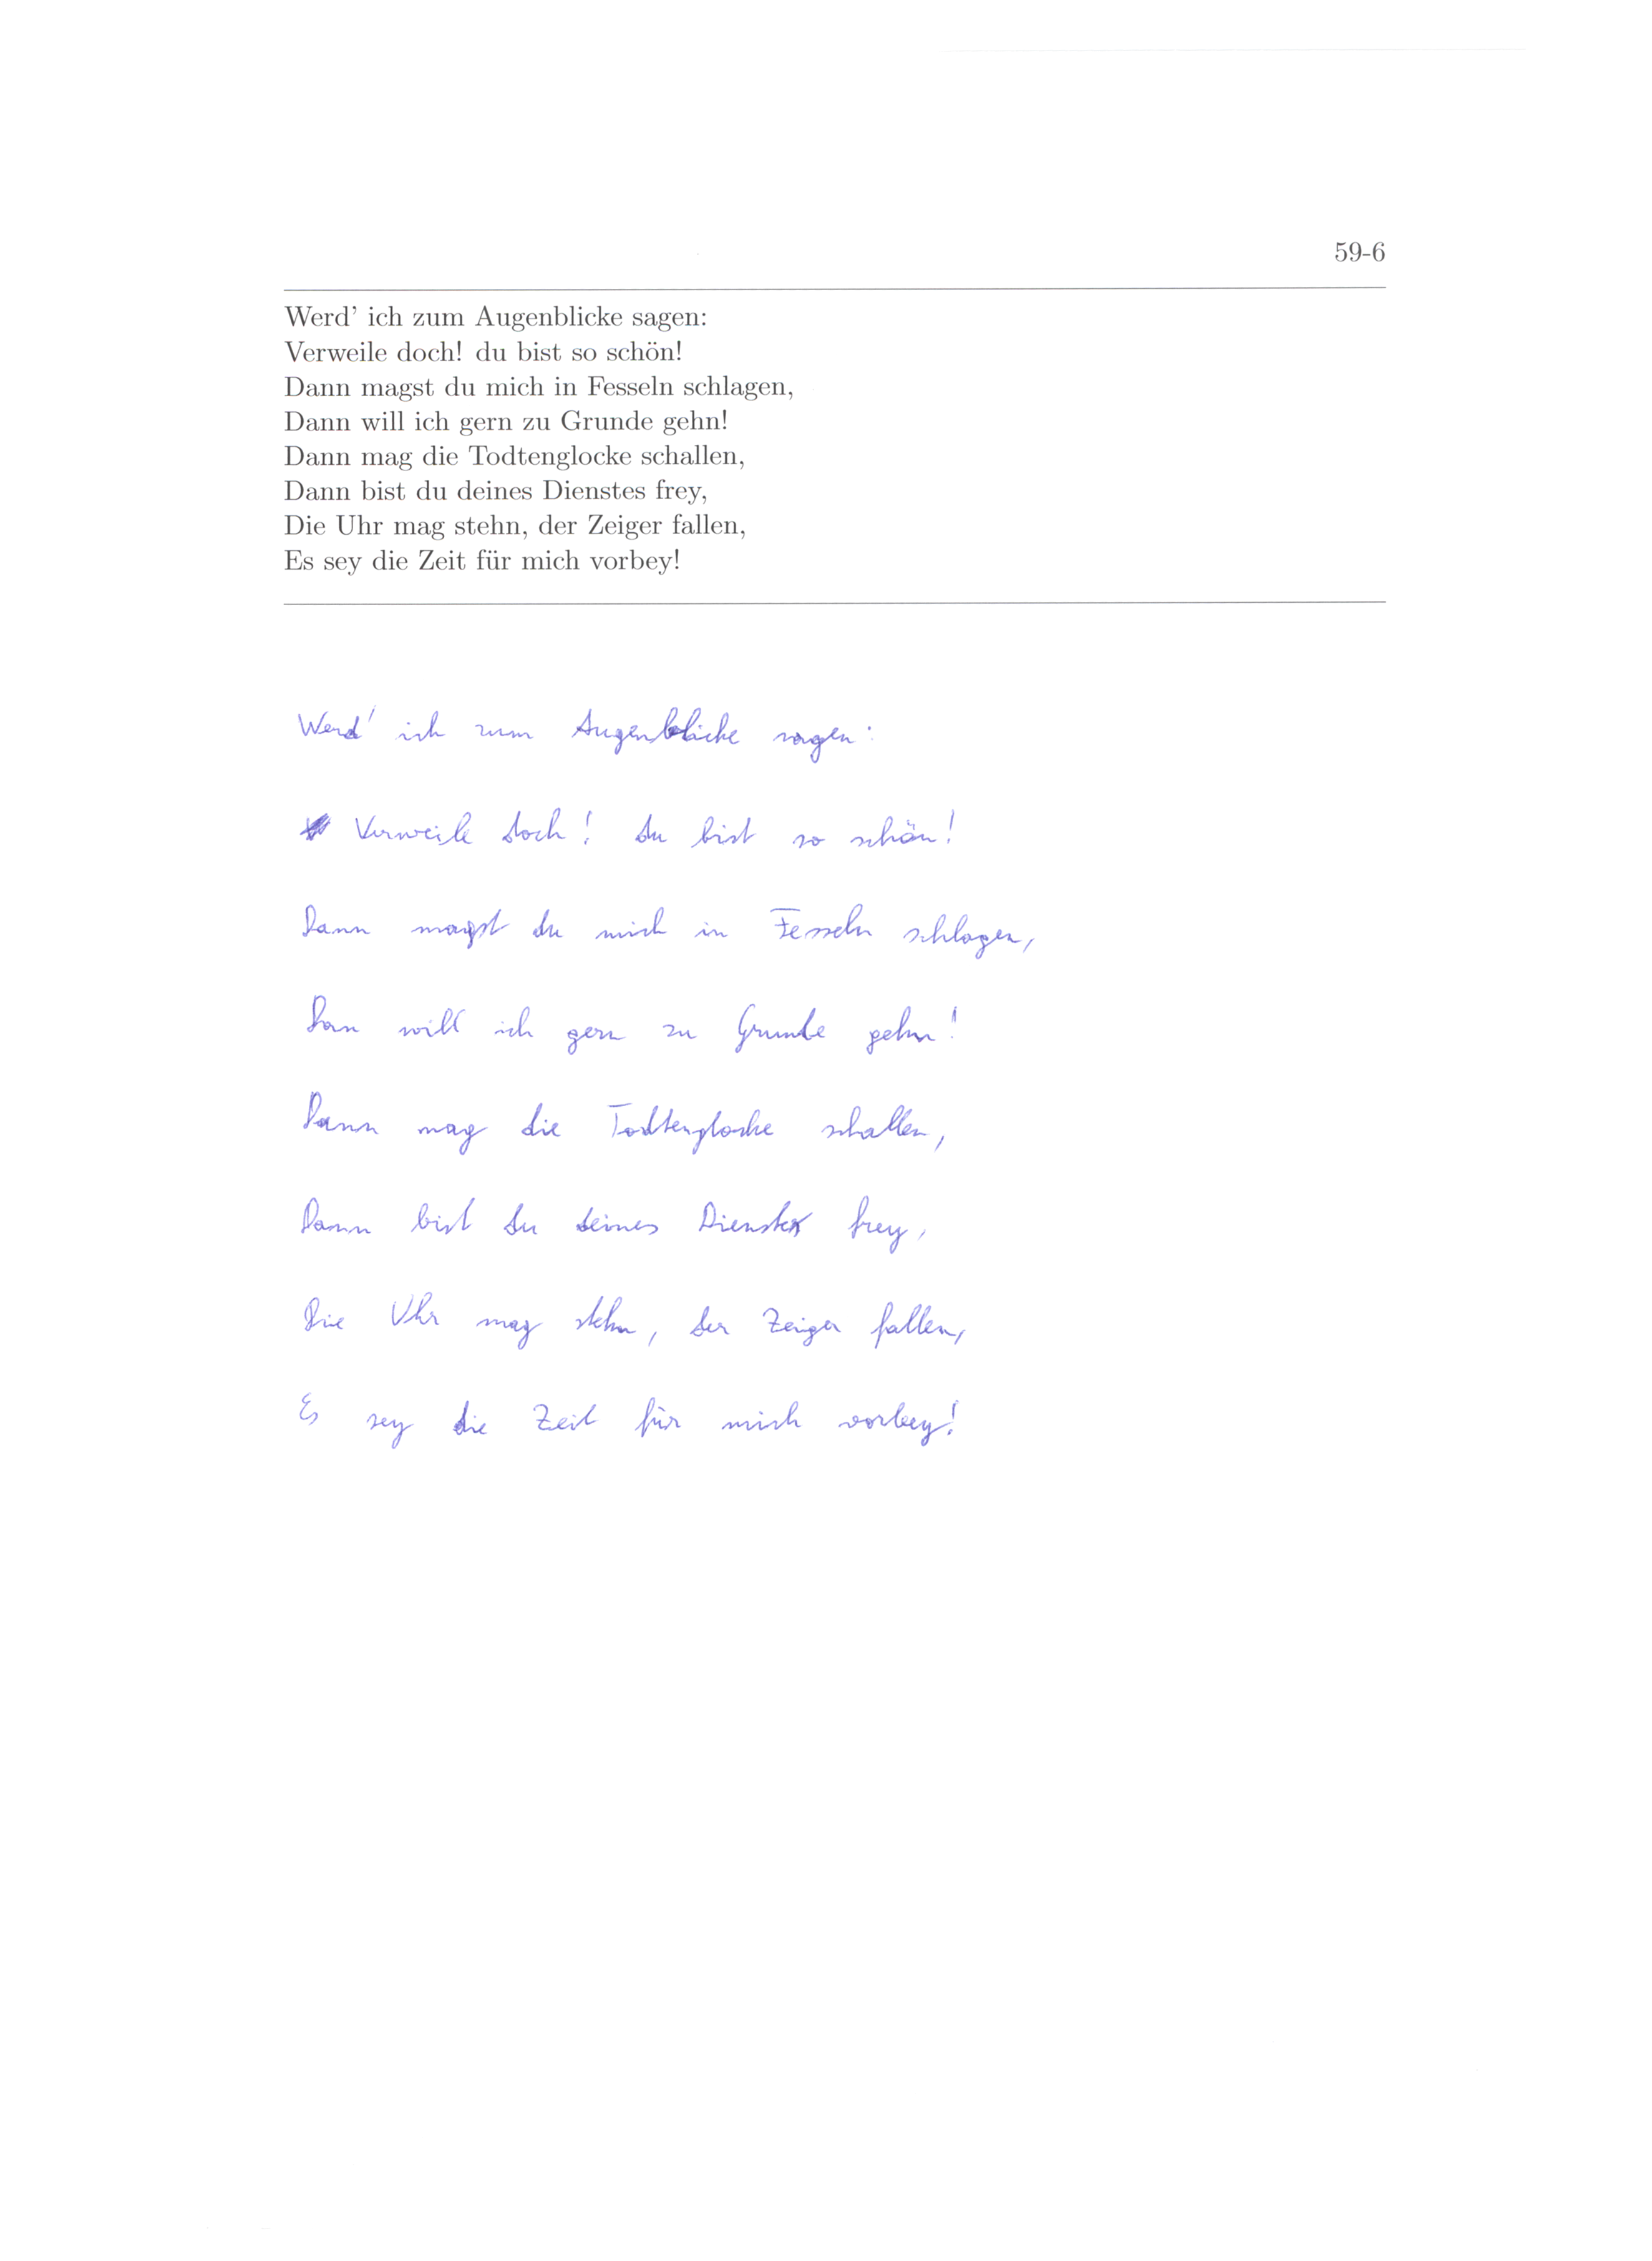 59-6
Werd' ich zum Augenblicke sagen:
Verweile doch! du bist so schön!
Dann magst du mich in Fesseln schlagen,
Dann will ich gern zu Grunde gehn!
Dann mag die Todtenglocke schallen,
Dann bist du deines Dienstes frey,
Die Uhr mag stehn, der Zeiger fallen,
Es sey die Zeit für mich vorbey!
Werd' ich zum Augenblicke sagen:
Verweile doch! du bist so schön!
Dann magst du mich in Fesseln schlagen,
Dan will ich gern zu Grunde gehn!
Dann mag die Todtenglocke schallen,
Dann bist du deines Dienstes frey,
Die Uhr mag stehn, der Zeiger fallen,
Es sey die Zeit für mich vorbey!